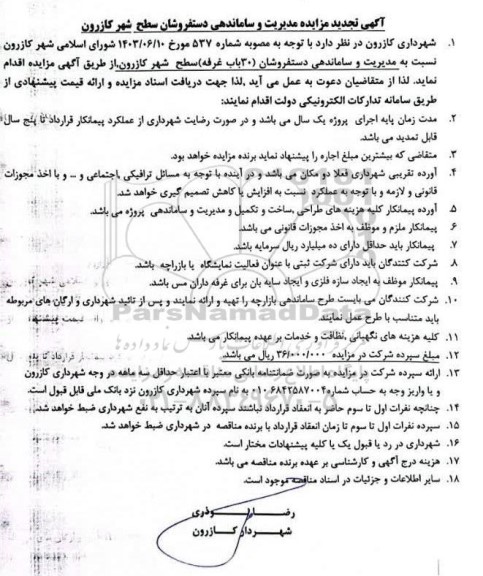 آگهی تجدید مزایده مدیریت و ساماندهی دستفروشان سطح شهر کازرون
۱. شهرداری کازرون در نظر دارد با توجه به مصوبه شماره ۵۳۷ مورخ ۱۴۰۳/۰۶/۱۰ شورای اسلامی شهر کازرون
نسبت به مدیریت و ساماندهی دستفروشان (۳۰باب غرفه)سطح شهر کازرون،از طریق آگهی مزایده اقدام
نماید. لذا از متقاضیان دعوت به عمل می آید ،لذا جهت دریافت اسناد مزایده و ارائه قیمت پیشنهادی از
طریق سامانه تدارکات الکترونیکی دولت اقدام نمایند:
۲. مدت زمان پایه اجرای پروژه یک سال می باشد و در صورت رضایت شهرداری از عملکرد پیمانکار قرارداد تا پنج سال
قابل تمدید می باشد.
۳. متقاضی که بیشترین مبلغ اجاره را پیشنهاد نماید برنده مزایده خواهد بود.
۴. آورده تقریبی شهرداری فعلا دو مکان می باشد و در آینده با توجه به مسائل ترافیکی ،اجتماعی و ... و با اخذ مجوزات
قانونی و لازمه و با توجه به عملکرد نسبت به افزایش یا کاهش تصمیم گیری خواهد شد.
۵. آورده پیمانکار کلیه هزینه های طراحی ،ساخت و تکمیل و مدیریت و ساماندهی پروژه می باشد.
۶. پیمانکار ملزم و موظف به اخذ مجوزات قانونی می باشد.
۷. پیمانکار باید حداقل دارای ده میلیارد ریال سرمایه باشد.
۸. شرکت کنندگان باید دارای شرکت ثبتی با عنوان فعالیت نمایشگاه یا بازراچه باشد.
۹. پیمانکار موظف به ایجاد سازه فلزی و ایجاد سایه بان برای غرفه داران مس باشد.
۱۰. شرکت کنندگان می بایست طرح ساماندهی بازارچه را تهیه و ارائه نمایند و پس از تائید شهرداری و ارگان های مربوطه
باید متناسب با طرح عمل نمایند.
۱۱. کلیه هزینه های نگهبانی ،نظافت و خدمات بر عهده پیمانکار می باشد.
۱۲. مبلغ سپرده شرکت در مزایده ۳۶۰/۰۰۰/۰۰۰ ریال می باشد.
۱۳. ارائه سپرده شرکت در مزایده به صورت ضمانتنامه بانکی معتبر با اعتبار حداقل سه ماهه در وجه شهرداری کازرون
و یا واریز وجه به حساب شماره ۰۱۰۶۸۴۲۵۸۷۰۰۴ به نام سپرده شهرداری کازرون نزد بانک ملی قابل قبول است.
۱۴. چنانچه نفرات اول تا سوم حاضر به انعقاد قرارداد نباشند سپرده آنان به ترتیب به نفع شهرداری ضبط خواهد شد.
۱۵. سپرده نفرات اول تا سوم تا زمان انعقاد قرارداد با برنده مناقصه در شهرداری ضبط خواهد شد.
۱۶. شهرداری در رد یا قبول یک یا کلیه پیشنهادات مختار است.
۱۷. هزینه درج آگهی و کارشناسی بر عهده برنده مناقصه می باشد.
۱۸. سایر اطلاعات و جزئیات در اسناد مناقصه موجود است.
شهردار کازرون
ParsNamadData